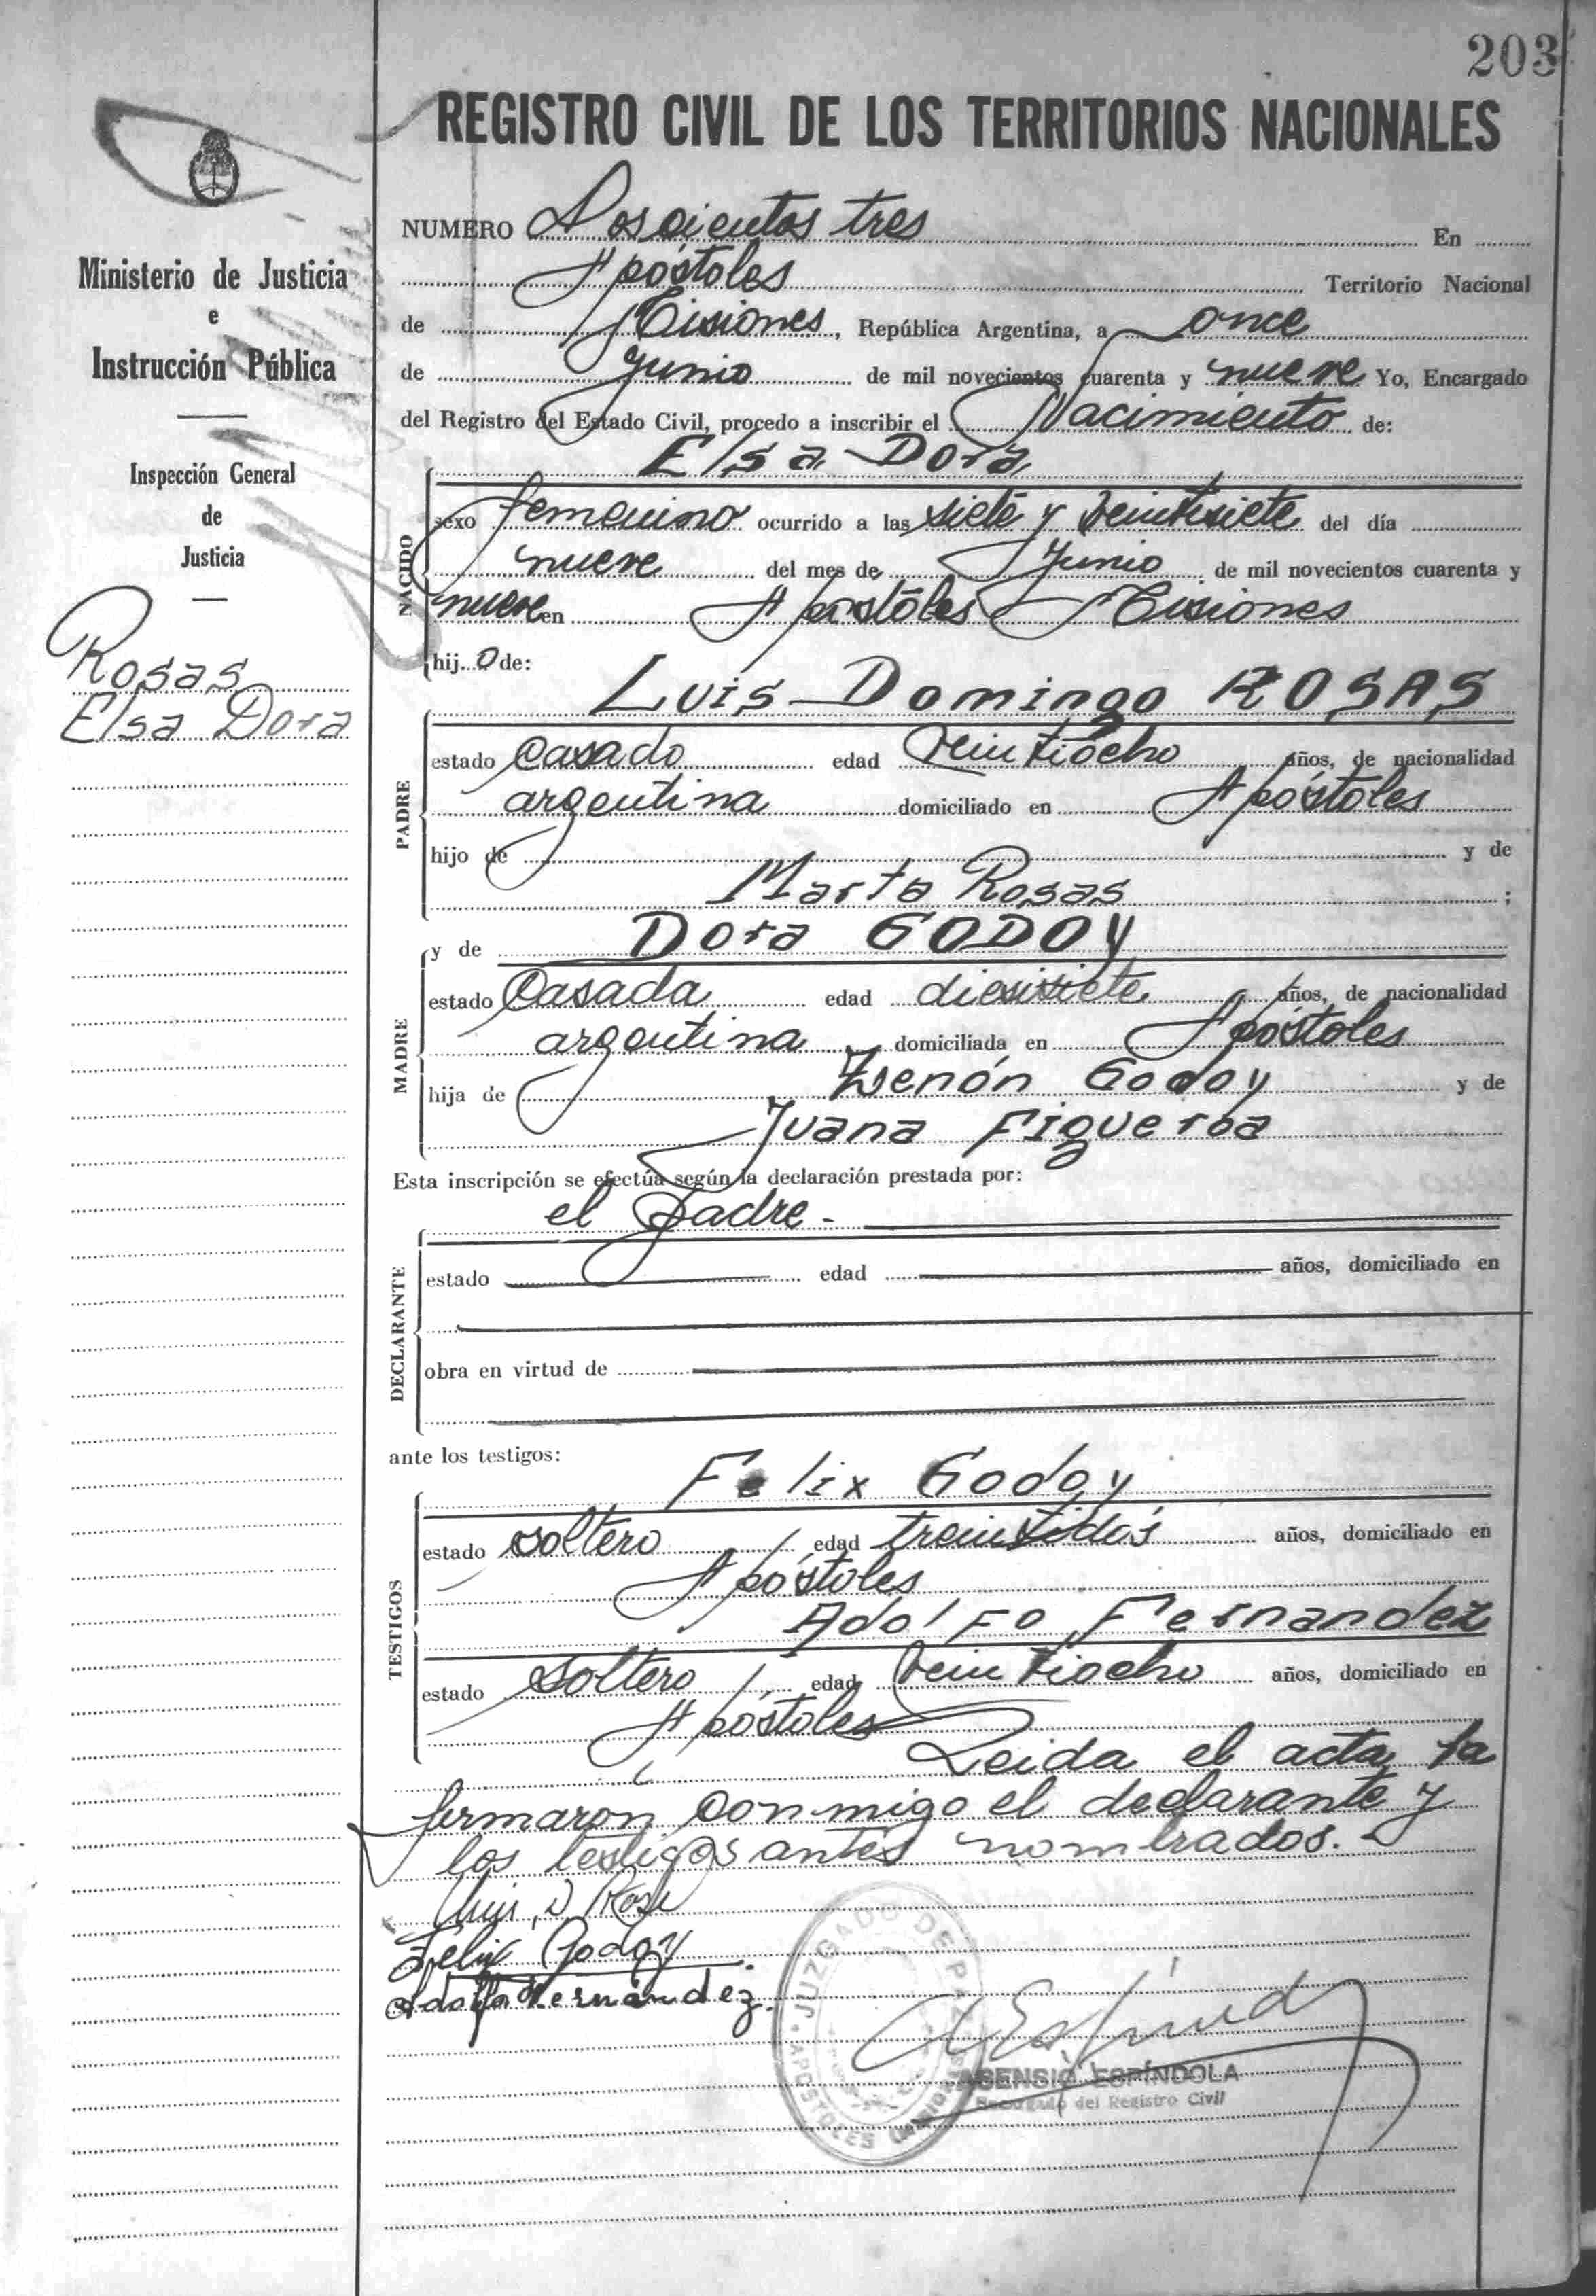 203
REGISTRO CIVIL DE LOS TERRITORIOS NACIONALES
Ministerio de Justicia
e
Instrucción Pública
Inspección General
de
Justicia
Rosas
Elsa Dora
NUMERO Doscientos tres En
Apóstoles Territorio Nacional
de Misiones, República Argentina, a once
de Junio de mil novecientos cuarenta y nueve Yo, Encargado
del Registro del Estado Civil, procedo a inscribir el Nacimiento de:
Elsa Dora
NACIDO
sexo femenino ocurrido a las siete y veintisiete del día
nueve del mes de Junio de mil novecientos cuarenta y
nueve en Apóstoles Misiones
hij o de:
Luis Domingo ROSAS
PADRE
estado Casado edad veintiocho años, de nacionalidad
argentina domiciliado en Apóstoles
hijo de y de
Marta Rosas ;
y de Dora GODOY
MADRE
estado Casada edad diesisiete años, de nacionalidad
argentina domiciliada en Apóstoles
hija de Zenón Godoy y de
Juana Figueroa
Esta inscripción se efectúa según la declaración prestada por:
el Padre.-
DECLARANTE
estado edad años, domiciliado en
obra en virtud de
ante los testigos:
Felix Godoy
TESTIGOS
estado soltero, edad treintidós años, domiciliado en
Apóstoles
Adolfo Fernandez
estado soltero, edad veintiocho años, domiciliado en
Apóstoles
Leida el acta la
firmaron conmigo el declarante y
los testigos antes nombrados.-
Luis D Rosa
Felix Godoy
Adolfo Fernández.
JUZGADO DE PAZ
APOSTOLES Misiones
ASENSIO ESPÍNDOLA
Encargado del Registro Civil